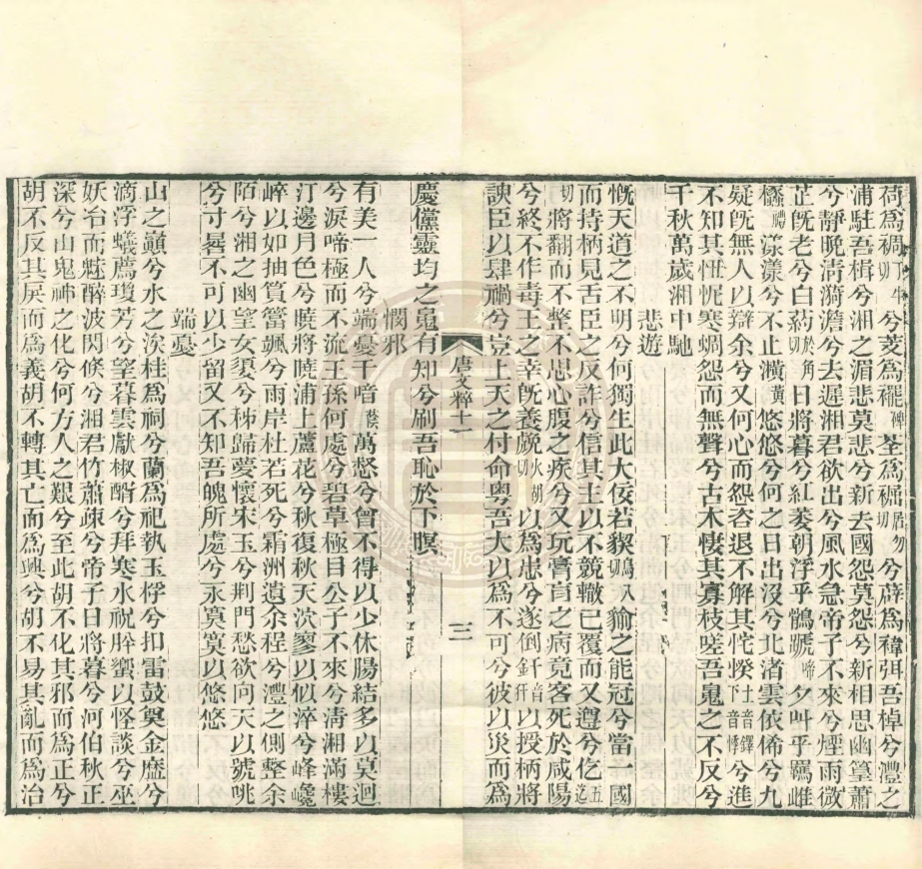 荷為裯丁牛切兮菱為襬碑荃為裾居勿切兮薜為褘弭吾棹兮澧之
浦駐吾楫兮湘之湄悲莫悲兮新去國怨莫怨兮新相思幽篁蕭
兮靜晚淸漪澹兮去遲湘君欲出兮風水急帝子不來兮煙雨微
芷旣老兮白葯於角切日將暮兮紅蔆朝浮乎鶻鷈啼夕叫乎羈雌
漾漾兮不止潢黃悠悠兮何之日出沒兮北渚雲依俙兮九
疑旣無人以辯余兮又何心而怨咨退不解其侘懌土音鐸兮進
不知其怩寒蜩怨而無聲兮古木悽其寡枝嗟吾鬼之不反兮
千秋萬歲湘中馳
悲遊
慨天道之不明兮何獨生此大佞若猰貐之能冠兮當一國
而持柄見舌臣之反詐兮信其主以不競轍已覆而又遵兮仡五迄
切將翻而不整不思心腹之疾兮又玩膏肓之病竟客死於咸陽
兮終不作毒王之幸旣養虤火胡切以為患兮遂倒釬音以授柄將
諛臣以肆禍兮豈上天之付命粵吾大以為不可兮彼以災而為
慶儻靈均之鬼有知兮刷吾恥於下暝
唐文粹十一
三
憫邪
有美一人兮端憂千喑萬愁兮曾不得以少休腸結多以莫迴
兮淚啼極而不流王孫何處兮碧草極目公子不來兮淸湘滿樓
汀邊月色兮曉將曉浦上蘆花兮秋復秋天泬寥以似淬兮峰巉
崪以如抽篔簹颯兮雨岸杜若死兮霜洲遺余程兮澧之側整余
陌兮湘之幽望女嬃兮秭歸憂懷宋玉兮荆門愁欲向天以號咷
兮寸晷不可以少留又不知吾魄所處兮永寞寞以悠悠
端憂
山之巔兮水之涘桂為祠兮蘭為祀執玉桴兮扣雷鼓奠金罍兮
滴浮蟻薦瓊芳兮望暮雲獻椒醑兮拜寒水祝肸蠁以怪談兮巫
妖冶而魅醉波閃倏兮湘君竹蕭疎兮帝子日將暮兮河伯秋正
深兮山鬼神之化兮何方人之艱兮至此胡不化其邪而為正兮
胡不反其戾而為義胡不轉其亡而為興兮胡不易其亂而為治